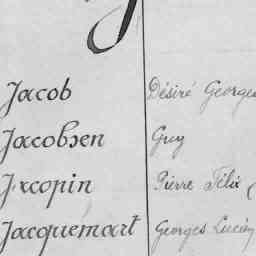 Jacob Désiré Georges
Jacobsen Guy
Jacopin Pierre Félix (
Jacquemart Georges Lucien